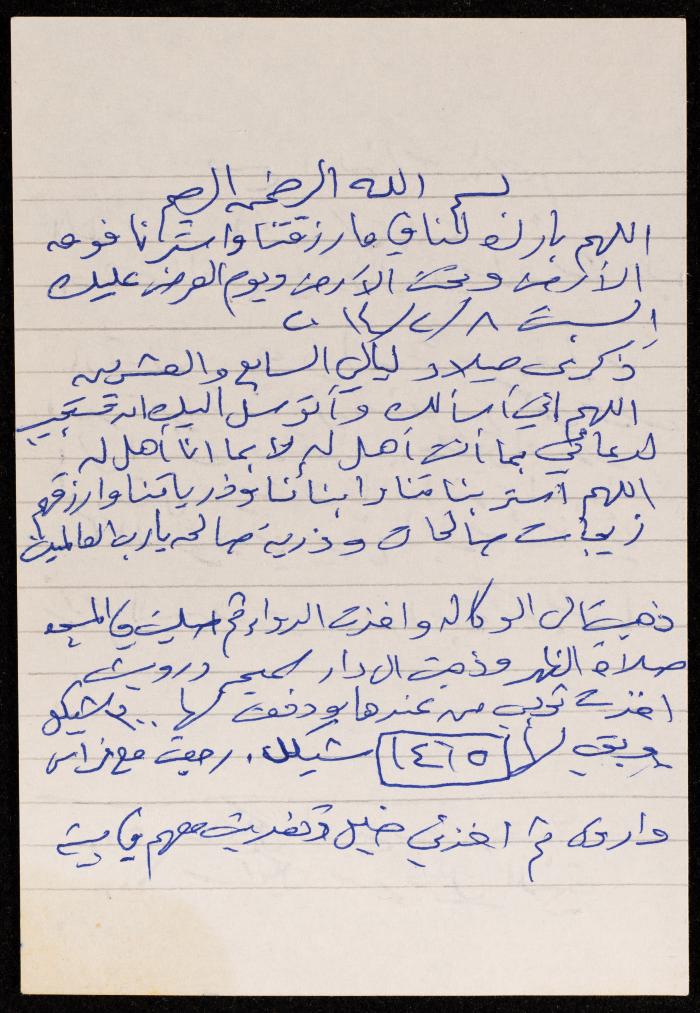 بسم الله الرحمن الرحيم
اللهم بارك لنا في ما رزقتنا واسترنا فوق
الأرض وتحت الأرض ويوم العرض عليك
السبت ٨/٢/٢٠١٤
ذكرى ميلاد ليالي السابع والعشرين
اللهم اني أسألك وأتوسل اليك ان تستجيب
لدعائي بما أنت أهل له لا بما انا أهل له
اللهم استر بناتنا وابنائنا وذرياتنا وارزقهم
زيجات صالحات وذرية صالحه يا رب العالمين
ذهبت الى الوكاله واخذت الدواء ثم صليت في المسجد
صلاة الظهر وذهبت الى دار سميح درويش
اخذت ثوبي من عندها ودفعت لها ٣٠٠ شيكل
وبقي لها ١٤٦٥ شيكل. رجعت مع فراس
واروى ثم اخذني خليل وتغديت معهم في بيت